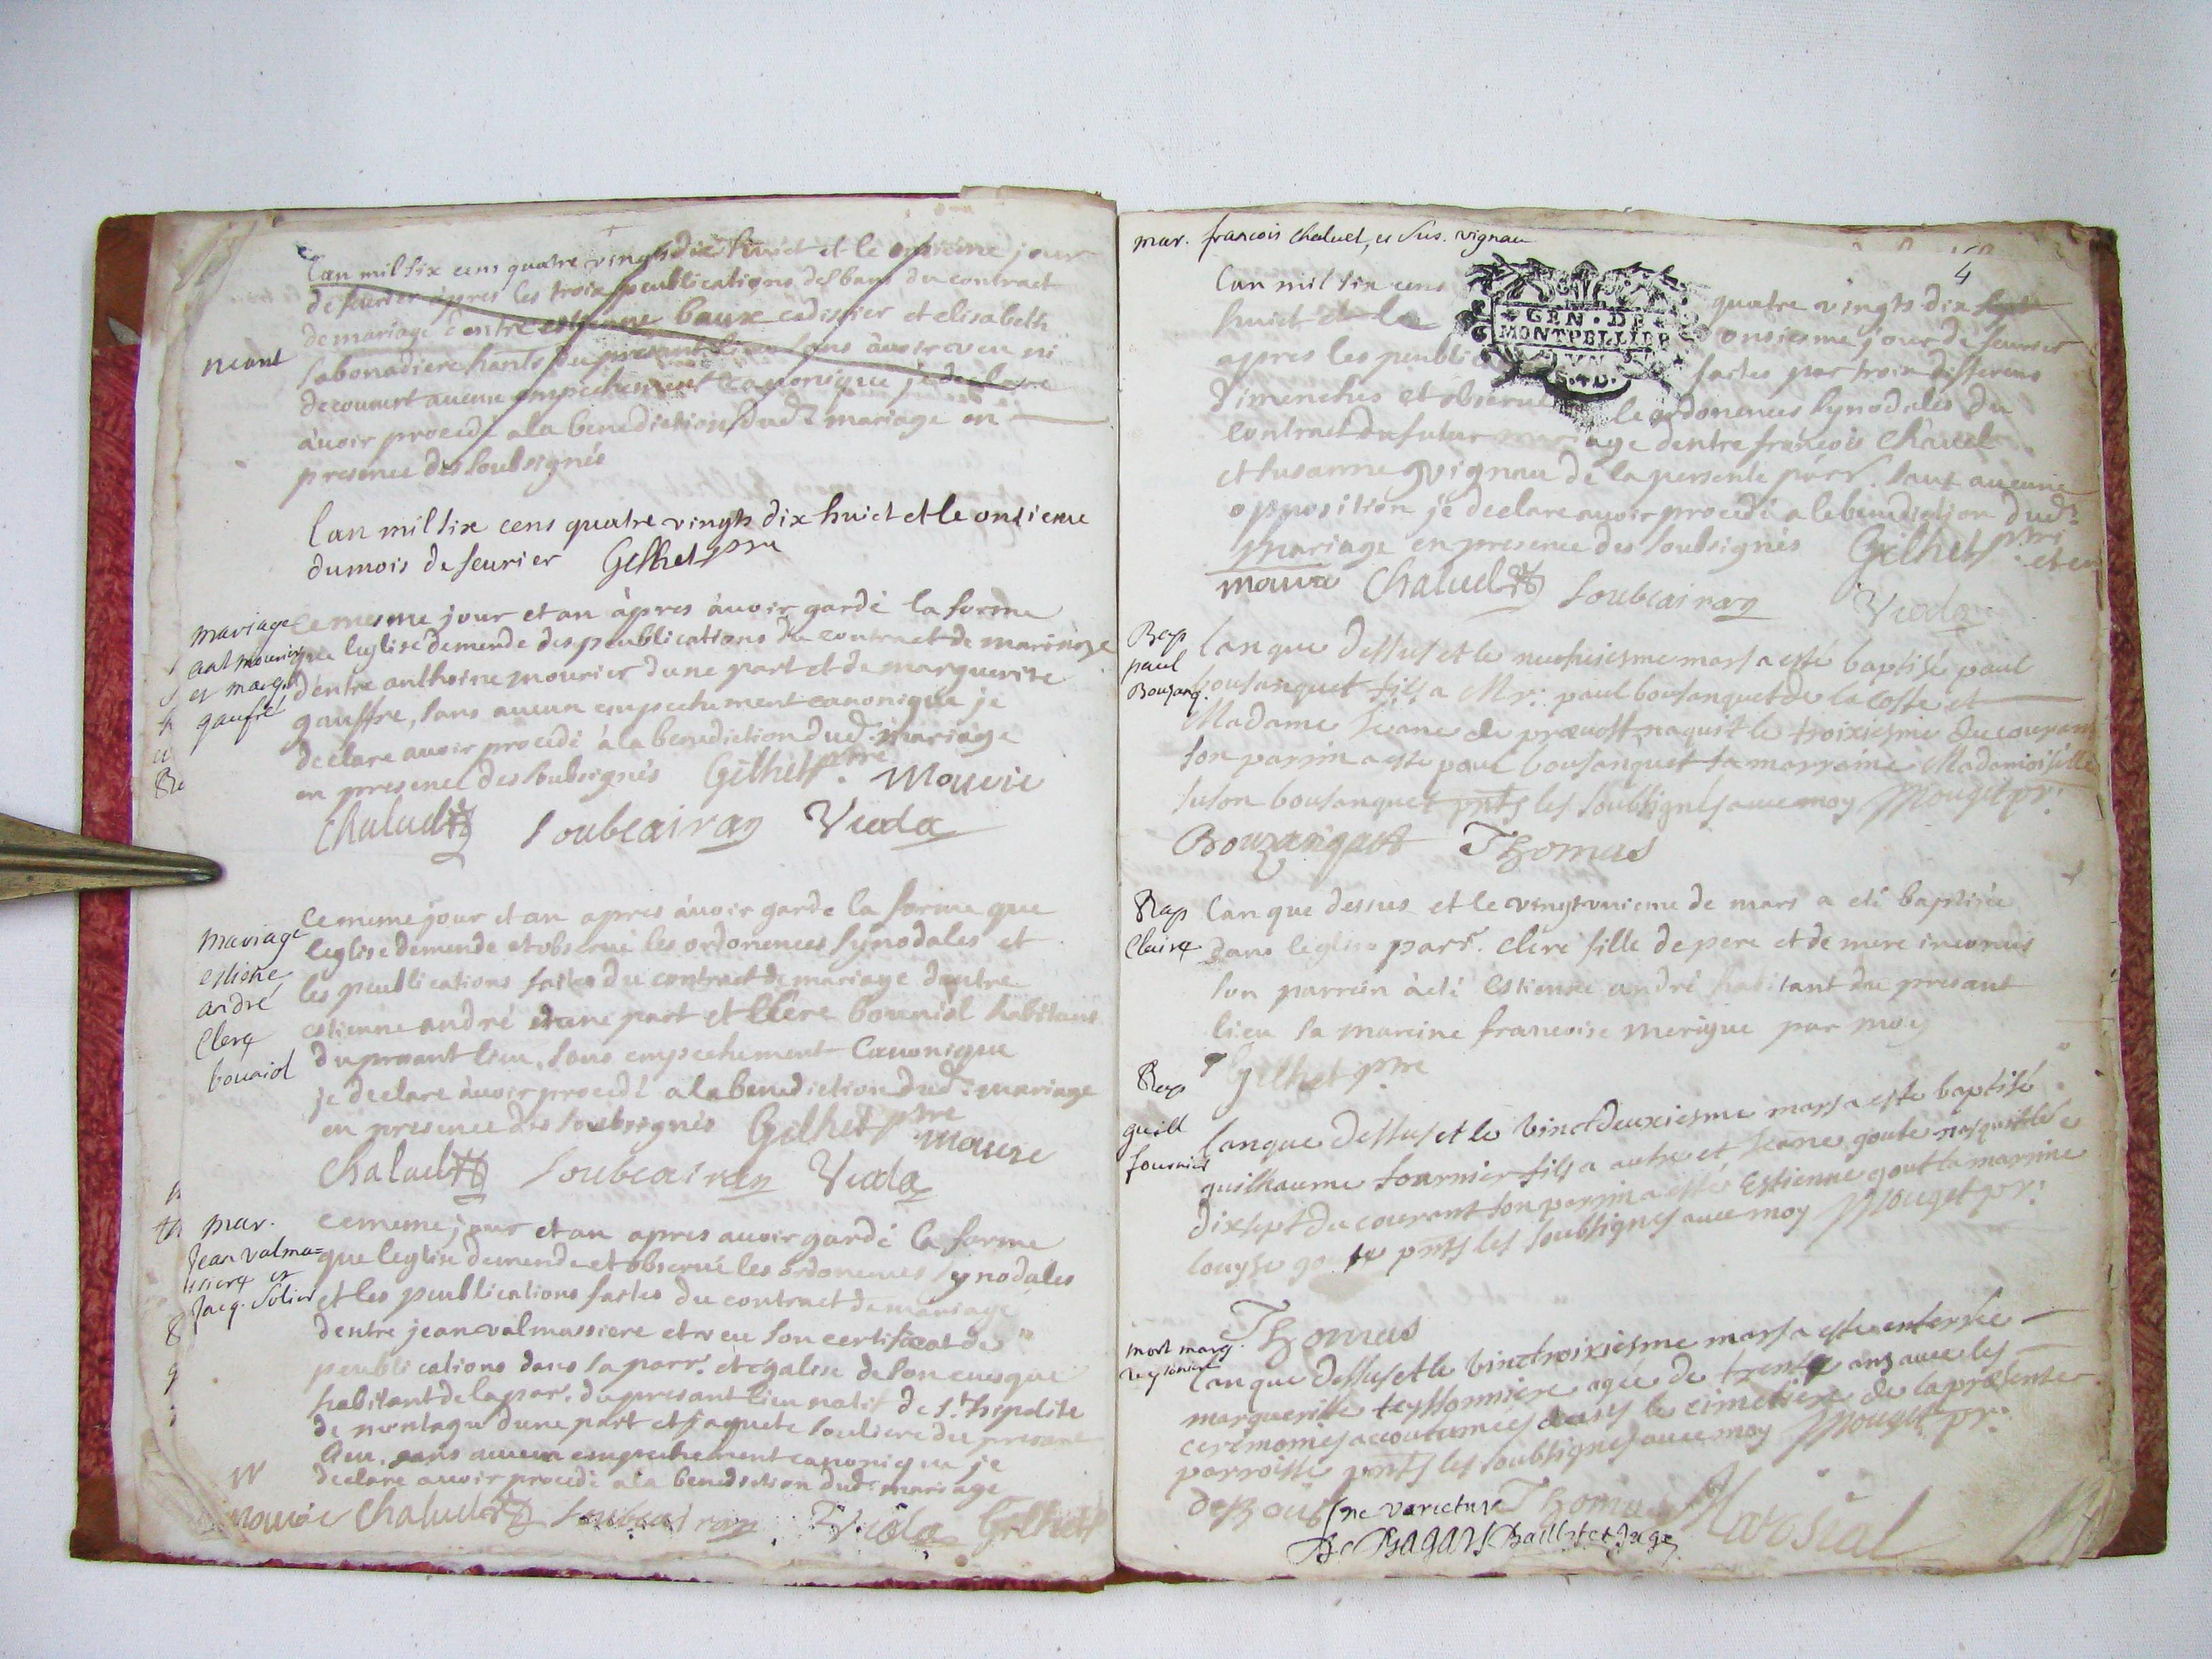 Lan mil six cens quatre vingts dix huict et le onsieme jour
de feurier apres les trois peublications des bans du contract
de mariage dentre estienne baux cadissier et elisabeth
neant
sabonadiere hants du presant lieu sans auoir veu ni
decouuert aucun empechement canonique je declare
auoir procedé a la benediction dud. mariage en
presence des soubsignés
lan mil six cens quatre vingts dix huict et le onsieme
du mois de feurier Gilhet pre
mariage
ant mourier
et marg.
gaufre
ce mesme jour et an apres auoir gardé la forme
que leglise demende des peublications du contract de mariage
dentre anthoine mourier dune part et de marguerite
gauffre, sans aucun empechement canonique je
declare auoir procedé a la benediction dud. mariage
en presence des soubsignés Gilhet pre. Mourie
Chalud Soubeairan Viala
mariage
estiene
andré
Clere
bouniol
ce mime jour et an apres auoir gardé la forme que
leglise demende et obserué les ordonences synodales et
les peublications faites du contract de mariage dentre
estienne andré dune part et Clere bouniol habitans
du presant lieu, sans empechement Canonique
je declare auoir procedé a la benediction dud. mariage
en presence des soubsignés Gilhet pre
mourie
Chalud Soubeairan Viala
mar.
Jean valma=
siere et
Jacq. Solier
ce meme jour et an apres auoir gardé la forme
que leglise demende et obserué les ordonences synodales
et les peublications faites du contract de mariage
dentre jean valmassiere et veu son certificat de
peublications dans sa parr. et egalise de son euesque
habitant de la par. du presant lieu natif de st. hipolite
de montagu dune part et jaquete souliere du presant
lieu, sans aucun empechement canonique je
declare auoir procedé a la benediction dud. mariage
mourie Chalud Soubeairan Viala Gilhet
mar. francois Chaluel, et Sus. vignau
4
GEN. DE
MONTPELLIER
Lan mil six cens quatre vingts dix
huict et le onsiesme jour de feurier
apres les peublic faites par trois differens
dimenches et obserué le ordonences synodales du
contract du futur mariage dentre francois Chaluel
et susanne vignau de la persente parr. sans aucune
opposition je declare auoir procedé a la benediction dud.
mariage en presence des soubsignés Gilhet pre
mourie Chalud Soubeairan Viala
Bap
paul
Bouzanq.
lan que dessus et le neufuiesme mars a esté baptisé paul
bousanquet fils a Mr. paul bousanquet de la coste et
Madame Jeane de præuost naquit le troixiesme du courant
son parrin a este paul bousanquet sa marraine Madamoiselle
suson bousanquet pnts les soubsignes auec moy Mouget pr.
Bouzanquet Thomas
Bap
Claire
Lan que dessus et le vingt unieme de mars a eté baptisée
dans leglise parr. clere fille de pere et de mere inconnus
son parrein à eté Estienne andré habitant du presant
lieu sa mareine francoise merigue par moy
Gilhet pre
Bap
guill
fournier
lan que dessus et le vinct deuxiesme mars a este baptisé
guilhaume fournier fils a autre et Jeane goute nasquit le
dixsept du courant son parrin a esté Estienne gout sa marrine
louyse go te pnts les soubsignes auec moy Mouget pr.
Thomas
mort marg.
lan que dessus et le vinctroixiesme mars a este enterrée
marguerite teyssonniere agée de trente ans auec les
cerimonies accoutumees dans le cimetiere de la præsente
parroisse pnts les soubsignes auec moy Mouget pr.
Thomas Marssial
ne varietur